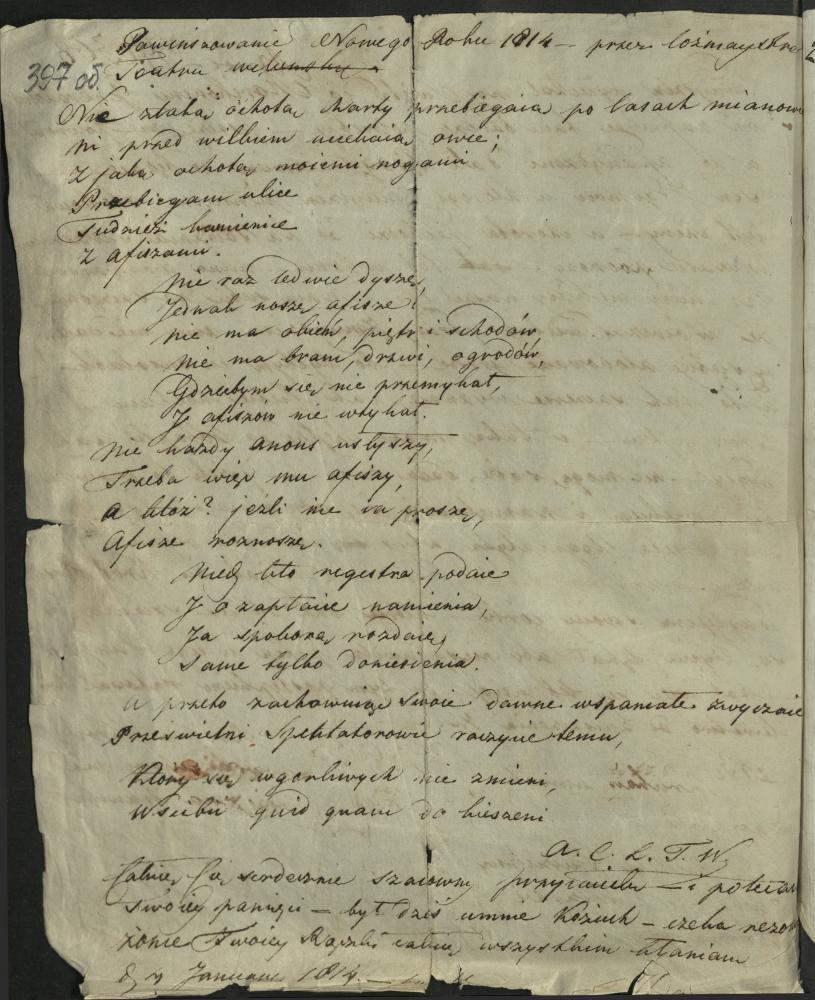 397 об.
Powinszowanie Nowego Roku 1814 – przez
Teatru
Nie z taką ochotą charty przebiegaią po lasach
ni przed wilkiem uciekaią owce;
Z jaką ochotą moiemi nogami
Przebiegam ulice
Tudzież kamienice
Z afiszami.
Nie raz ledwie dyszę,
Jednak noszę afisze
Nie ma okień, piętr i schodów,
Nie ma bram, drzwi, ogrodów,
Gdziebym się nie przemykał,
Y afiszów nie wtykał.
Nie każdy anons usłyszy,
Trzeba więc mu afiszy,
A któż? jeżli nie ia proszę,
Afisze roznoszę.
Niech kto regestra podaie
Y o zapłacie namienia,
Ja z pokorą rozdaię
Same tylko doniesienia.
A przeto zachowuiąc swoie dawne wspaniałe zwyczaie
Prześwietni Spektatorowie raczycie temu,
Który się w gorliwych nie zmieni,
Wścibić quid quam do kieszeni
A. C. L. T. W.
Całuię Cię serdecznie szacowny przyiacielu – i polecam
swoiey pamięci – był dziś u mnie Kożuch –
Twoiey Rączki całuię wszystkim kłaniam
Januari 1814.